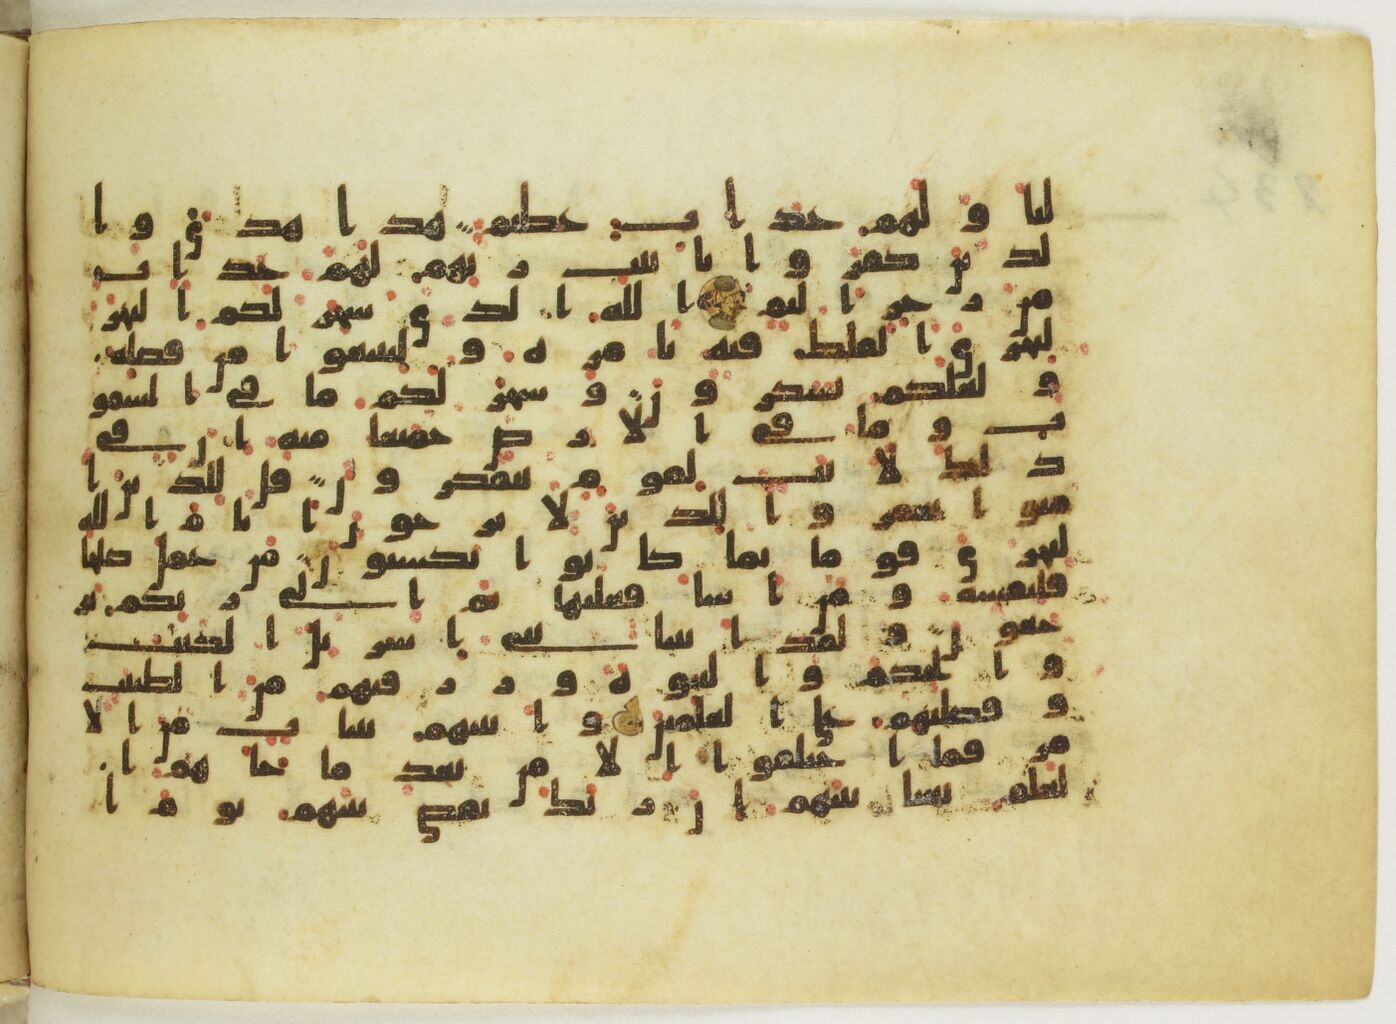 ليا ولهم عذاب عظيم هذا هدى وا
لذين كفروا بايت ربهم لهم عذاب
من رجز اليم الله الذي سخر لكم البحر
لتجري الفلك فيه بامره ولتبتغوا من فضله
ولعلكم تشكرون وسخر لكم ما في السمو
ت وما في الارض جميعا منه ان في
ذلك لايت لقوم يتفكرون قل للذين ا
منوا يغفروا للذين لا يرجون ايام الله
ليجزي قوما بما كانوا يكسبون من عمل صلحا
فلنفسه ومن اسا فعليها ثم الى ربكم تر
جعون ولقد اتينا بني اسريل الكتب
والحكم والنبوة ورزقنهم من الطيبت
وفضلنهم على العلمين واتينهم بينت من الا
مر فما اختلفوا الا من بعد ما جاهم ا
لعلم بغيا بينهم ان ربك يقضي بينهم يوم ا